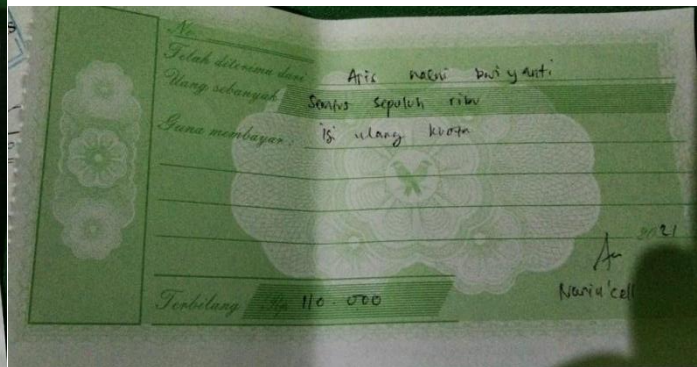 No.
Telah diterima dari Aris
Uang sebanyak Seratus sepuluh ribu
Guna membayar: isi ulang kuota
2021
Terbilang Rp. 110.000